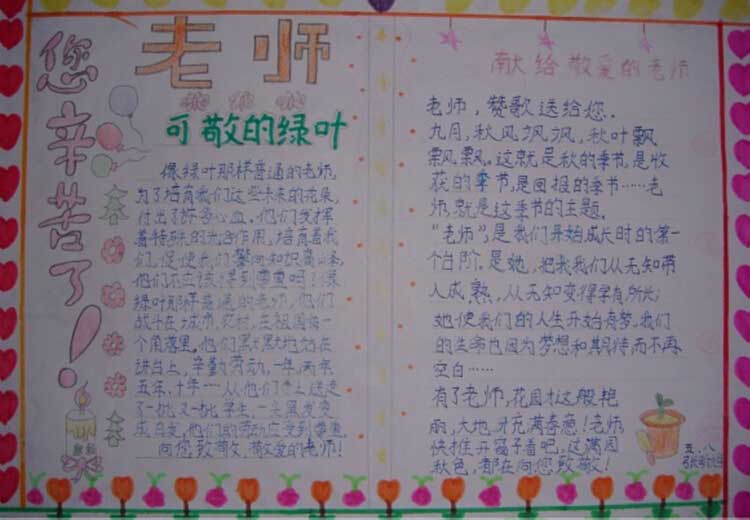 老师
您辛苦了！
可敬的绿叶
像绿叶那样普通的老师,
为了培育我们这些未来的花朵,
付出了许多心血,他们发挥
着特殊的光合作用,培育着我
们,促使我们攀向知识高峰,
他们不应该得到尊重吗？像
绿叶那样普通的老师,他们
战斗在城市,农村,在祖国每一
个角落里。他们默默地站在
讲台上,辛勤劳动,一年,两年
五年,十年……从他们手上送走
了一批又一批学生,一头黑发变
成白发,他们的劳动应受到尊重
向您致敬,敬爱的老师!
献给敬爱的老师
老师,赞歌送给您.
九月,秋风飒飒,秋叶飘
飘飘。这就是秋的季节,是收
获的季节,是回报的季节……老
师,就是这季节的主题。
“老师”,是我们开始成长时的第一
个台阶。是她,把我我们从无知带
入成熟,从无知变得学有所长;
她使我们的人生开始有梦,我们
的生命也因为梦想和期待而不再
空白……
有了老师,花园才这般艳
丽,大地才充满春意!老师
快推开窗子看吧,这满园
秋色,都在向您致敬!
五.八